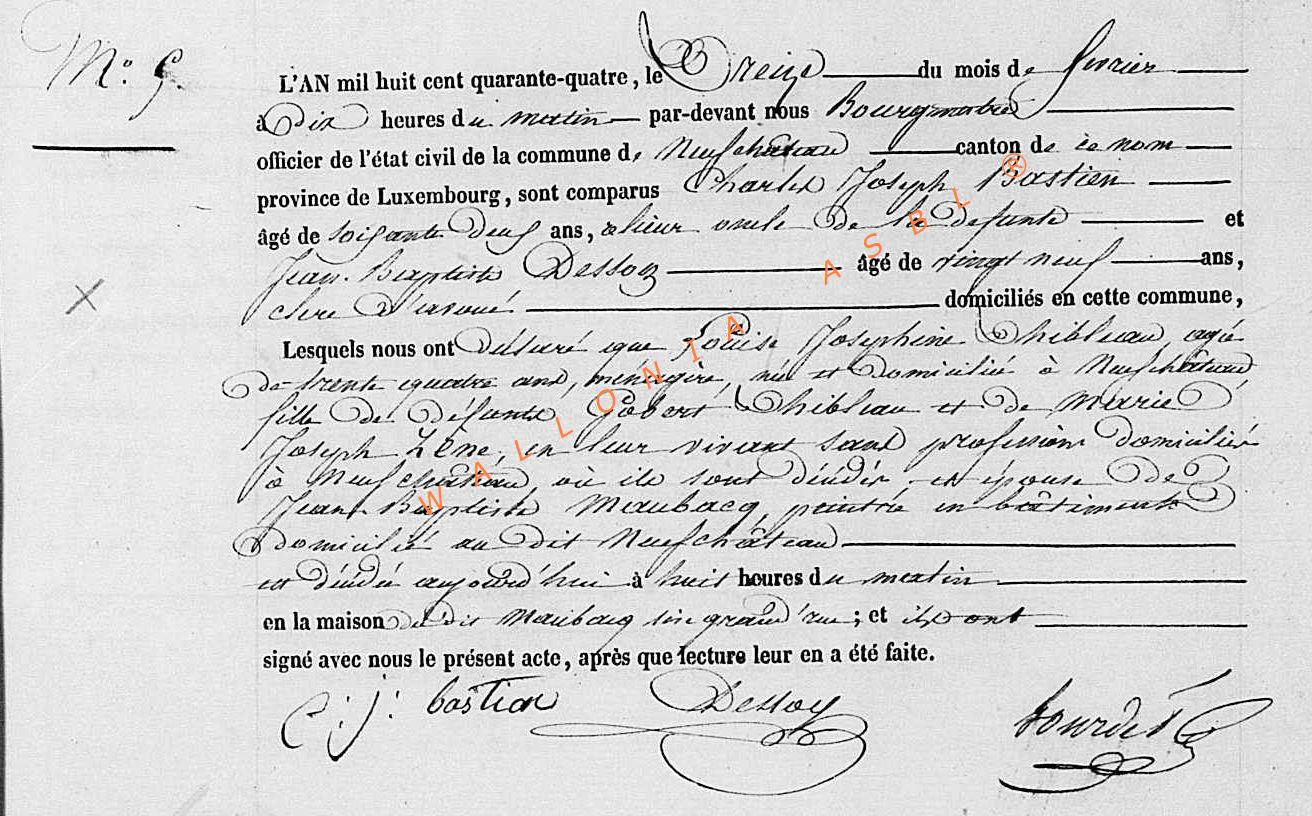 N° 5.
L'AN mil huit cent quarante-quatre, le Treize du mois de fevrier
à Dix heures du matin par-devant nous Bourgmestre
officier de l'état civil de la commune de Neufchateau canton de ce nom
province de Luxembourg, sont comparus Charles Joseph Bastien
âgé de soixante deux ans, oncle de la defunte et
Jean-Baptiste Dessoy âgé de vingt neuf ans,
clerc d'avoué domiciliés en cette commune,
Lesquels nous ont déclaré que Louise Josephine Thibleau, agée
de trente quatre ans, ménagère, née et domiciliée à Neufchâteau
fille de défunts Gobert Thibleau et de Marie
Joseph Zéne, en leur vivant sans profession domiciliés
à Neufchâteau, où ils sont décédés, et épouse de
Jean-Baptiste Maubacq, peintre en bâtiments
domicilié au dit Neufchâteau
est décédée aujourd'hui à huit heures du matin
en la maison du dit Maubacq sise grand'rue; et ils ont
signé avec nous le présent acte, après que lecture leur en a été faite.
c: j: bastien Dessoy Gourdet
WALLONIA ASBL ®